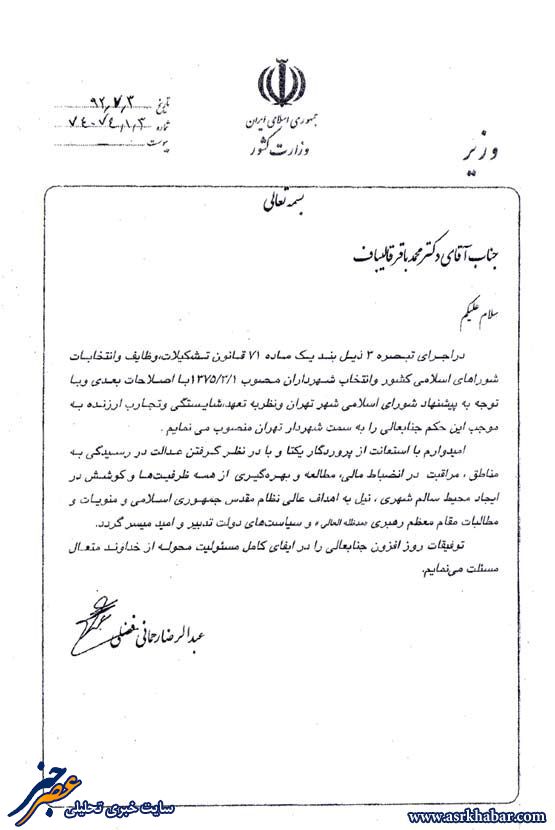 جمهوری اسلامی ایران
وزارت کشور
وزیر
تاریخ ۹۲/۷/۳
شماره ۷۴۰۷۴/۱/۳
پیوست
بسمه تعالی
جناب آقای دکتر محمد باقر قالیباف
سلام علیکم
در اجرای تبصره ۳ ذیل بند یک ماده ۷۱ قانون تشکیلات،وظایف وانتخابات
شوراهای اسلامی کشور وانتخاب شهرداران مصوب ۱۳۷۵/۳/۱با اصلاحات بعدی وبا
توجه به پیشنهاد شورای اسلامی شهر تهران ونظربه تعهد،شایستگی وتجارب ارزنده به
موجب این حکم جنابعالی را به سمت شهردار تهران منصوب می نمایم .
امیدوارم با استعانت از پروردگار یکتا و با در نظر گرفتن عدالت در رسیدگی به
مناطق ، مراقبت در انضباط مالی، مطالعه و بهره‌گیری از همه ظرفیت‌ها و کوشش در
ایجاد محیط سالم شهری ، نیل به اهداف عالی نظام مقدس جمهوری اسلامی و منویات و
مطالبات مقام معظم رهبری «مدظله العالی» و سیاست‌های دولت تدبیر و امید میسر گردد.
توفیقات روز افزون جنابعالی را در ایفای کامل مسئولیت محوله از خداوند متعال
مسئلت می‌نمایم.
عبدالرضا رحمانی فضلی
عصر خبر
سایت خبری تحلیلی
www.asrkhabar.com